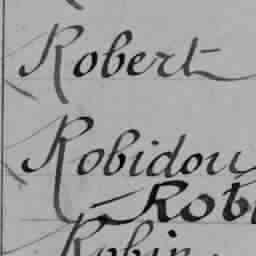 Robert
Robidou
Rob
Robin.